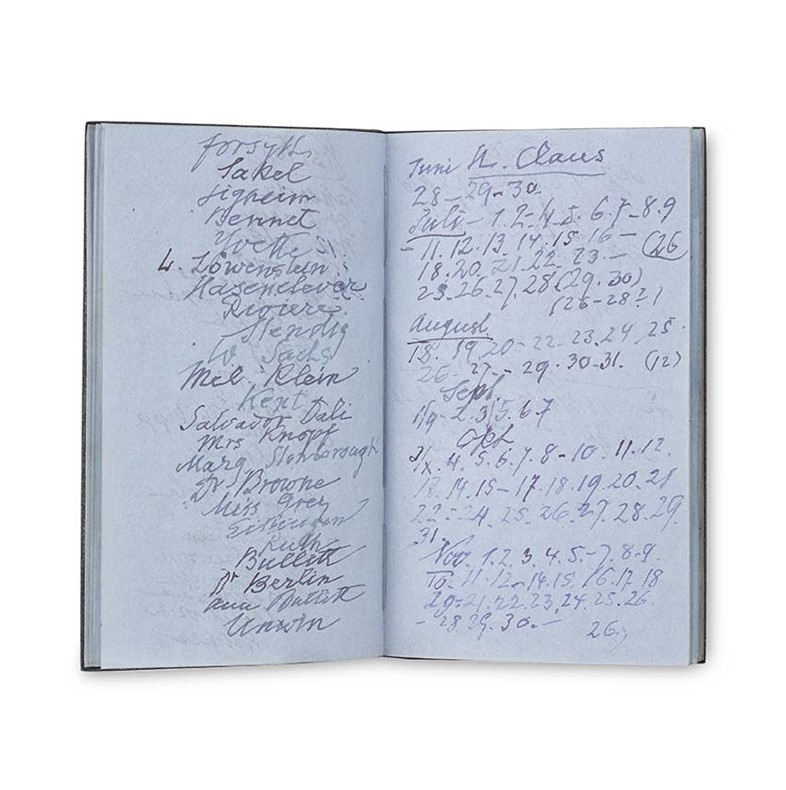 Forsyth
Sakel
Bennet
Yvette
4. Löwenstein
Hasenclever
Riviere
Mel. Klein
Kent
Salvador Dali
Mrs Knopf
Marq
Dr Browne
Miss Grey
Ruth
Bullitt
Dr Berlin
Bullitt
Unwin
Juni H. Claus
28 - 29-30.
Juli - 1. 2-4. 5. 6.7-8.9
- 11. 12. 13. 14. 15. 16 - (26
18. 20. 21. 22. 23. -
25. 26. 27. 28. (29. 30)
(26-28?)
August
18. 19. 20-22. 23. 24. 25.
26. 27. - 29. 30-31. (12)
Sept.
1/9 - 2. 3. 5. 6. 7
Okt
4. 5. 6. 7. 8 - 10. 11. 12.
14. 15 - 17. 18. 19. 20. 21
22 - 24. 25. 26. 27. 28. 29
31.
Nov. 1. 2. 3. 4. 5. - 7. 8. 9.
10. 11. 12 - 14. 15. 16. 17. 18
21. 22. 23. 24. 25. 26
- 28 30. - 26.